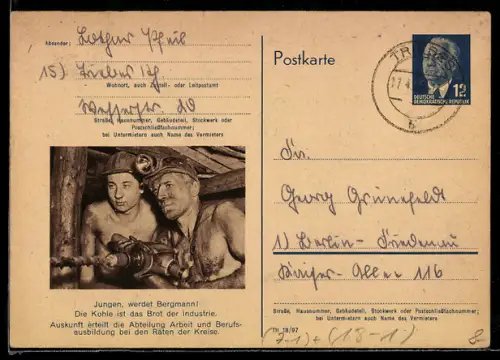 Absender: Lothar Pheil
15)
Wohnort, auch Zustell- oder Leitpostamt
Straße, Hausnummer, Gebäudeteil, Stockwerk oder
Postschließfachnummer;
bei Untermietern auch Name des Vermieters
Jungen, werdet Bergmann!
Die Kohle ist das Brot der Industrie.
Auskunft erteilt die Abteilung Arbeit und Berufs-
ausbildung bei den Räten der Kreise.
Postkarte
12
DEUTSCHE
DEMOKRATISCHE REPUBLIK
b
Georg Grünefeldt
1) Berlin-Friedenau
Kaiser-Allee 116
Straße, Hausnummer, Gebäudeteil, Stockwerk oder Postschließfachnummer;
bei Untermietern auch Name des Vermieters